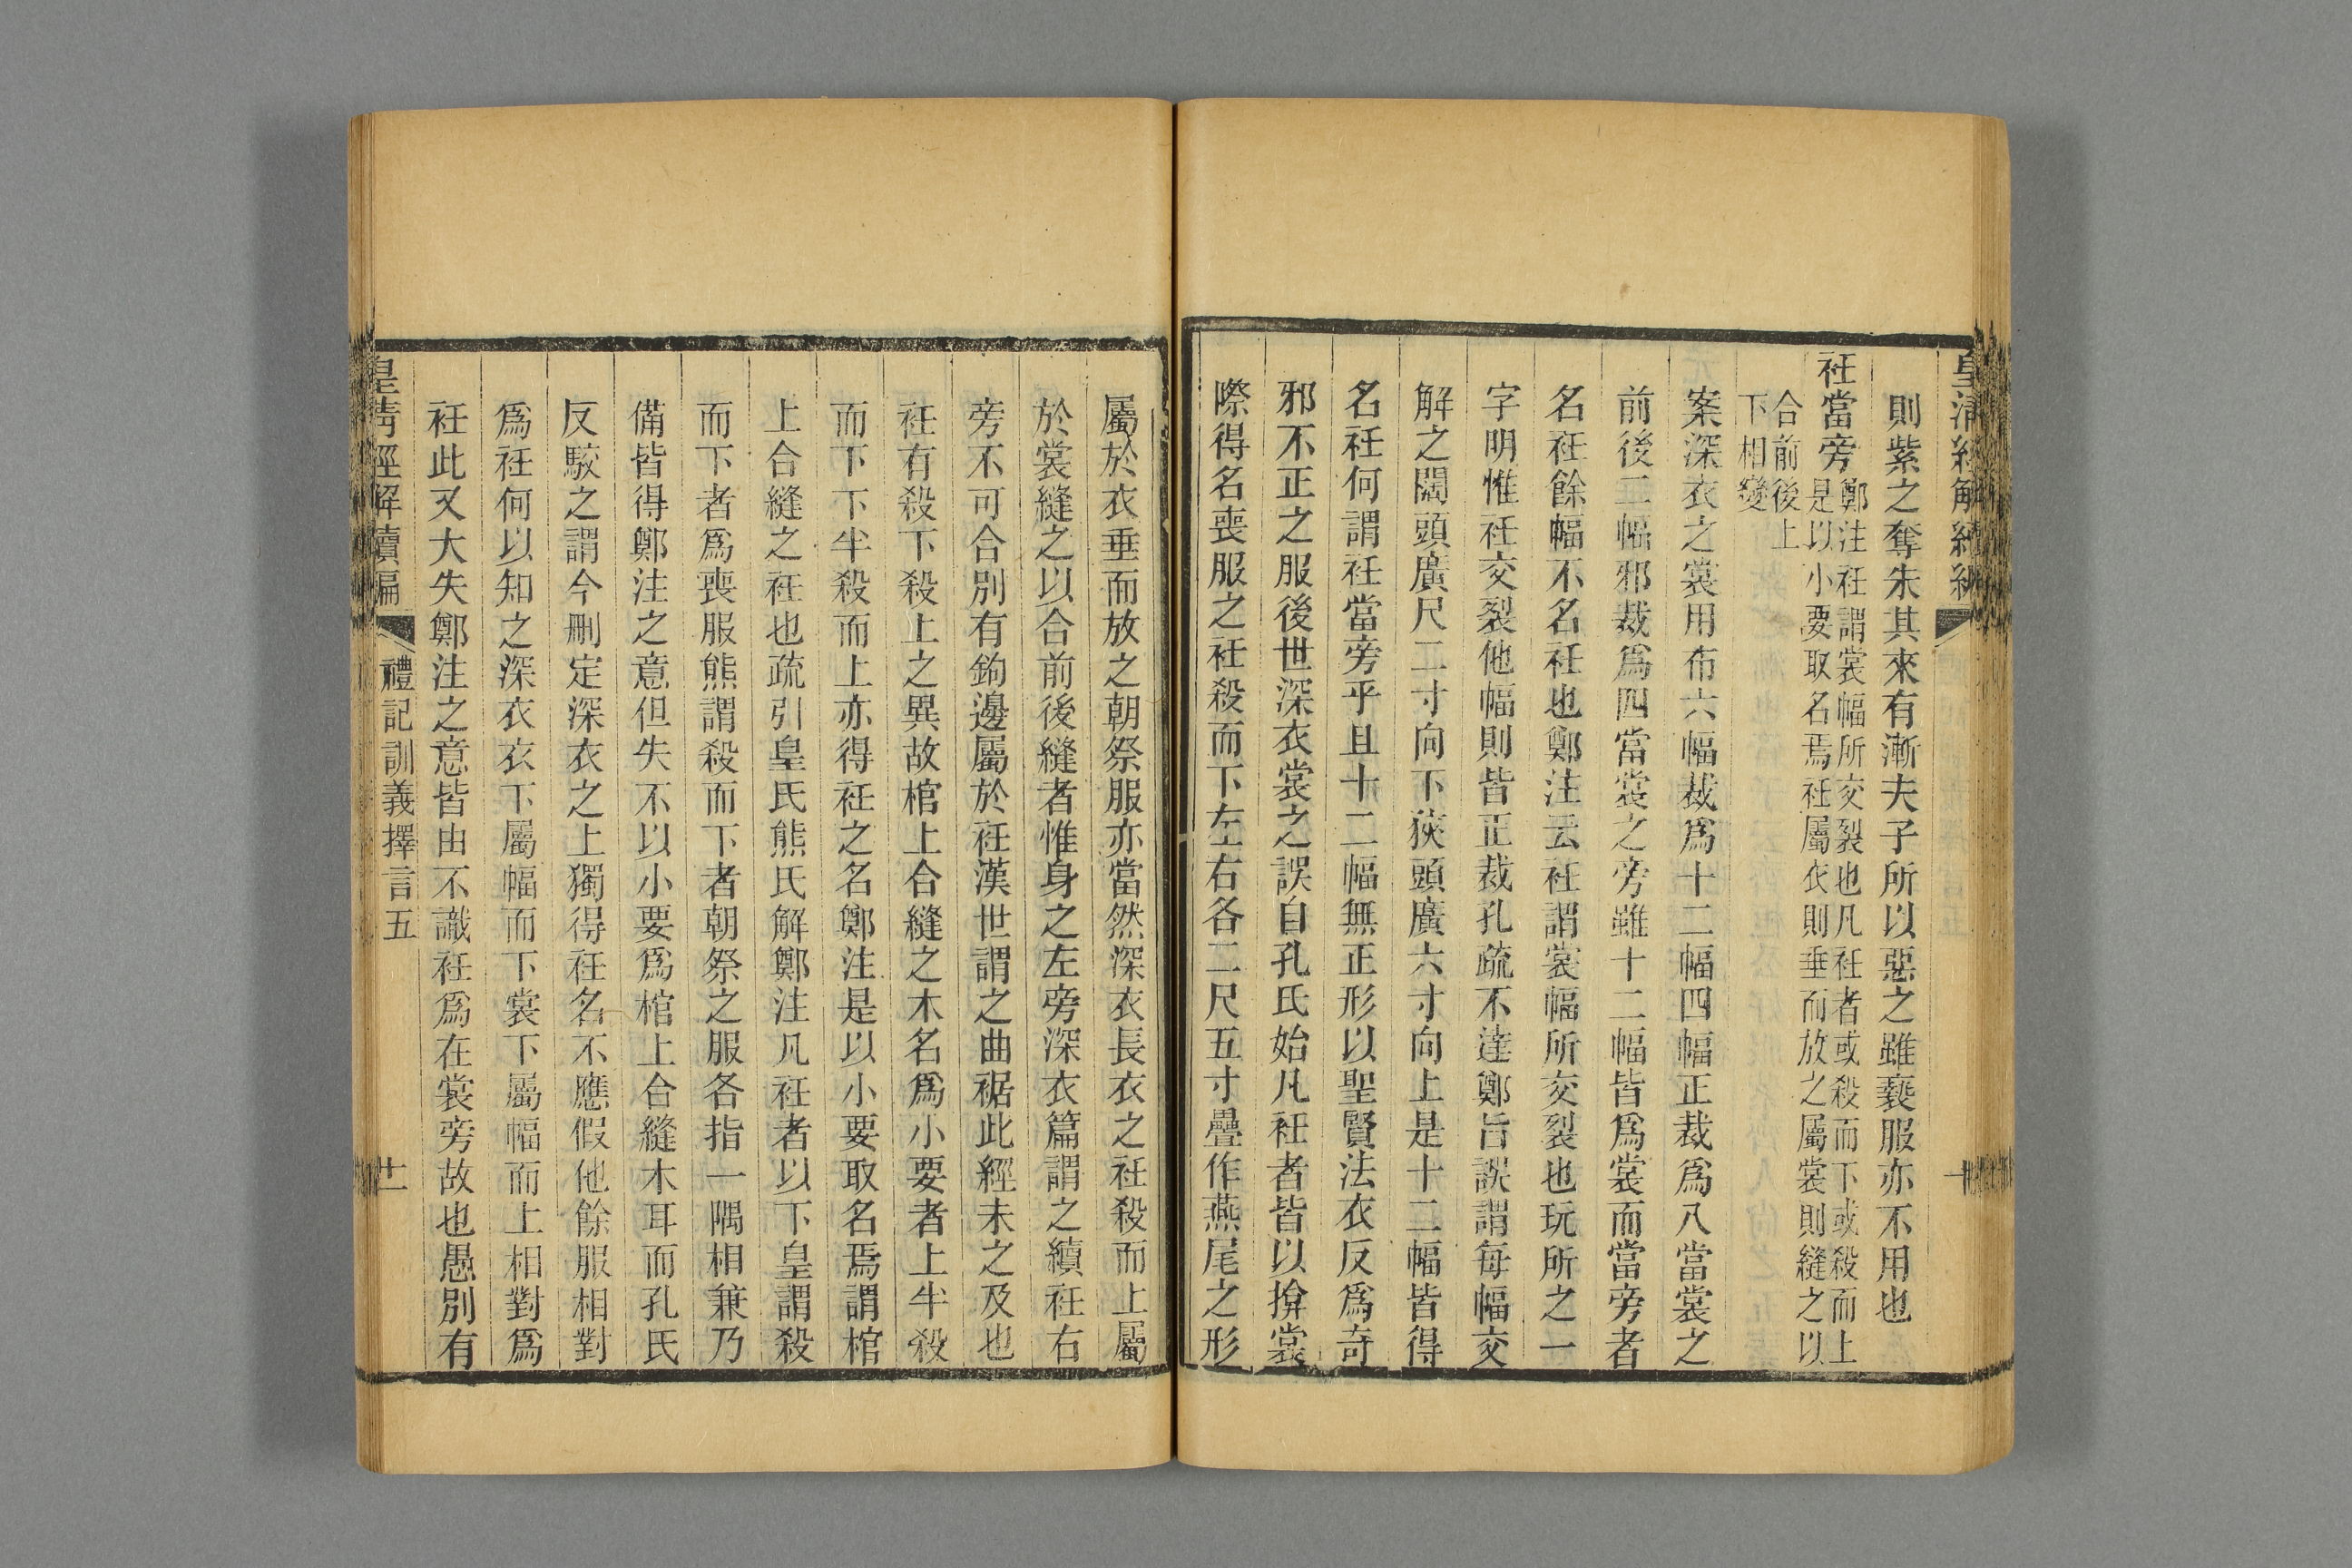 則紫之奪朱其來有漸夫子所以惡之雖褻服亦不用也
衽當旁
鄭注衽謂裳幅所交裂也凡衽者或殺而下或殺而上
是以小要取名焉衽屬衣則垂而放之屬裳則縫之以
合前後上
下相變
案深衣之裳用布六幅裁爲十二幅四幅正裁爲八當裳之
前後二幅邪裁爲四當裳之旁雖十二幅皆爲裳而當旁者
名衽餘幅不名衽也鄭注云衽謂裳幅所交裂也玩所之一
字明惟衽交裂他幅則皆正裁孔疏不達鄭旨誤謂每幅交
解之闊頭廣尺二寸向下狹頭廣六寸向上是十二幅皆得
名衽何謂衽當旁乎且十二幅無正形以聖賢法衣反爲奇
邪不正之服後世深衣裳之誤自孔氏始凡衽者皆以揜裳
際得名喪服之衽殺而下左右各二尺五寸疊作燕尾之形
屬於衣垂而放之朝祭服亦當然深衣長衣之衽殺而上屬
於裳縫之以合前後縫者惟身之左旁深衣篇謂之續衽右
旁不可合別有鉤邊屬於衽漢世謂之曲裾此經未之及也
衽有殺下殺上之異故棺上合縫之木名爲小要者上半殺
而下下半殺而上亦得衽之名鄭注是以小要取名焉謂棺
上合縫之衽也疏引皇氏熊氏解鄭注凡衽者以下皇謂殺
而下者爲喪服熊謂殺而下者朝祭之服各指一隅相兼乃
備皆得鄭注之意但失不以小要爲棺上合縫木耳而孔氏
反駮之謂今刪定深衣之上獨得衽名不應假他餘服相對
爲衽何以知之深衣衣下屬幅而下裳下屬幅而上相對爲
衽此又大失鄭注之意皆由不識衽爲在裳旁故也愚別有
皇清經解續編
禮記訓義擇言五
十一